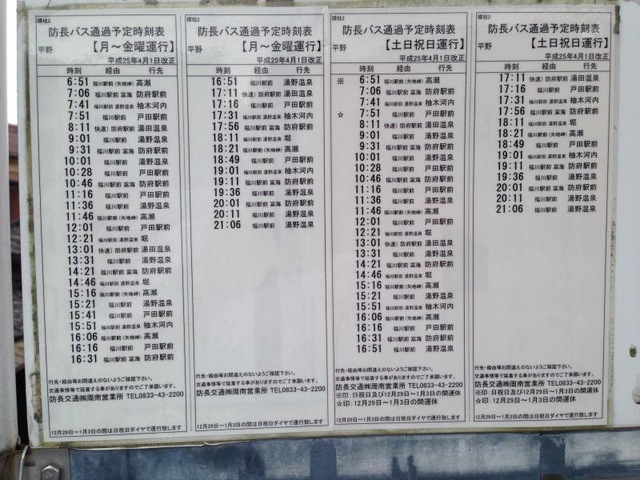 標柱2
防長バス通過予定時刻表
平野 【月～金曜運行】
平成25年4月1日改正
時刻 経由 行先
6:51 福川駅前(矢地峠) 高瀬
7:06 福川駅前 富海 防府駅前
7:41 福川駅前 湯野温泉 柚木河内
7:51 福川駅前 戸田駅前
8:11 快速) 防府駅前 湯田温泉
9:01 福川駅前 湯野温泉
9:31 福川駅前 富海 防府駅前
10:01 福川駅前 湯野温泉
10:28 福川駅前 戸田駅前
10:46 福川駅前 富海 防府駅前
11:16 福川駅前 戸田駅前
11:36 福川駅前 湯野温泉
11:46 福川駅前(矢地峠) 高瀬
12:01 福川駅前 戸田駅前
12:21 福川駅前 湯野温泉 堀
13:01 快速) 防府駅前 湯田温泉
13:31 福川駅前 湯野温泉
14:21 福川駅前 富海 防府駅前
14:46 福川駅前 湯野温泉 堀
15:16 福川駅前(矢地峠) 高瀬
15:21 福川駅前 湯野温泉
15:41 福川駅前 戸田駅前
15:51 福川駅前 湯野温泉 柚木河内
16:06 福川駅前(矢地峠) 高瀬
16:16 福川駅前 戸田駅前
16:31 福川駅前 富海 防府駅前
行先・経由等お間違えのないようご確認下さい。
交通事情等で延着する事がありますのでご了承願います。
防長交通㈱周南営業所 TEL0833-43-2200
12月29日～1月3日の間は日祝日ダイヤで運行致します
標柱2
防長バス通過予定時刻表
平野 【月～金曜運行】
平成25年4月1日改正
時刻 経由 行先
16:51 福川駅前 湯野温泉
17:11 快速) 防府駅前 湯田温泉
17:16 福川駅前 戸田駅前
17:31 福川駅前 湯野温泉 柚木河内
17:56 福川駅前 富海 防府駅前
18:11 福川駅前 湯野温泉 堀
18:21 福川駅前(矢地峠) 高瀬
18:49 福川駅前 戸田駅前
19:01 福川駅前 湯野温泉 柚木河内
19:11 福川駅前 富海 防府駅前
19:36 福川駅前 湯野温泉
20:01 福川駅前 富海 防府駅前
20:11 福川駅前 湯野温泉
21:06 福川駅前 湯野温泉
行先・経由等お間違えのないようご確認下さい。
交通事情等で延着する事がありますのでご了承願います。
防長交通㈱周南営業所 TEL0833-43-2200
12月29日～1月3日の間は日祝日ダイヤで運行致します
標柱2
防長バス通過予定時刻表
平野 【土日祝日運行】
平成25年4月1日改正
時刻 経由 行先
※ 6:51 福川駅前(矢地峠) 高瀬
7:06 福川駅前 富海 防府駅前
7:41 福川駅前 湯野温泉 柚木河内
☆ 7:51 福川駅前 戸田駅前
8:11 快速) 防府駅前 湯田温泉
9:01 福川駅前 湯野温泉
9:31 福川駅前 富海 防府駅前
10:01 福川駅前 湯野温泉
10:28 福川駅前 戸田駅前
10:46 福川駅前 富海 防府駅前
11:16 福川駅前 戸田駅前
11:36 福川駅前 湯野温泉
11:46 福川駅前(矢地峠) 高瀬
12:01 福川駅前 戸田駅前
12:21 福川駅前 湯野温泉 堀
13:01 快速) 防府駅前 湯田温泉
13:31 福川駅前 湯野温泉
14:21 福川駅前 富海 防府駅前
14:46 福川駅前 湯野温泉 堀
15:16 福川駅前(矢地峠) 高瀬
15:21 福川駅前 湯野温泉
15:51 福川駅前 湯野温泉 柚木河内
16:06 福川駅前(矢地峠) 高瀬
16:16 福川駅前 戸田駅前
16:31 福川駅前 富海 防府駅前
16:51 福川駅前 湯野温泉
行先・経由等お間違えのないようご確認下さい。
交通事情等で延着する事がありますのでご了承願います。
防長交通㈱周南営業所 TEL0833-43-2200
※印：日祝日及び12月29日～1月3日の間運休
☆印：12月29日～1月3日の間運休
12月29日～1月3日の間は日祝日ダイヤで運行致します
標柱2
防長バス通過予定時刻表
平野 【土日祝日運行】
平成25年4月1日改正
時刻 経由 行先
17:11 快速) 防府駅前 湯田温泉
17:16 福川駅前 戸田駅前
17:31 福川駅前 湯野温泉 柚木河内
17:56 福川駅前 富海 防府駅前
18:11 福川駅前 湯野温泉 堀
18:21 福川駅前(矢地峠) 高瀬
18:49 福川駅前 戸田駅前
19:01 福川駅前 湯野温泉 柚木河内
19:11 福川駅前 富海 防府駅前
19:36 福川駅前 湯野温泉
20:01 福川駅前 富海 防府駅前
20:11 福川駅前 湯野温泉
21:06 福川駅前 湯野温泉
行先・経由等お間違えのないようご確認下さい。
交通事情等で延着する事がありますのでご了承願います。
防長交通㈱周南営業所 TEL0833-43-2200
※印：日祝日及び12月29日～1月3日の間運休
☆印：12月29日～1月3日の間運休
12月29日～1月3日の間は日祝日ダイヤで運行致します